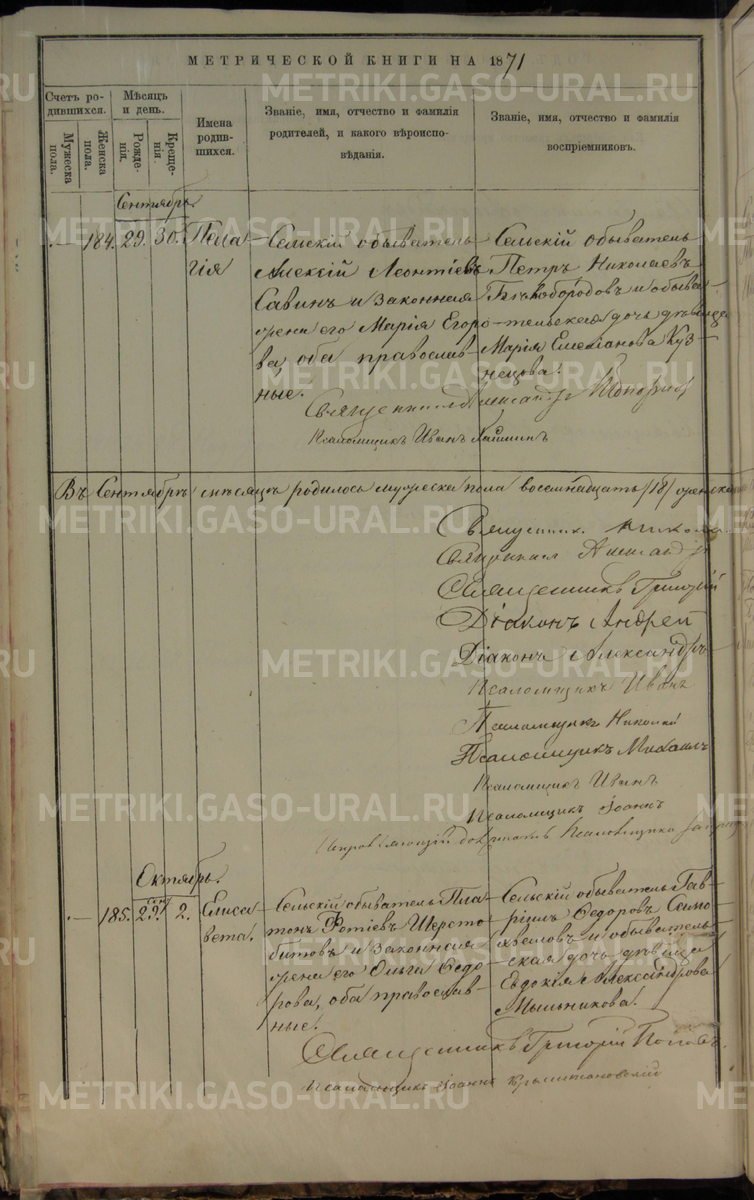 МЕТРИЧЕСКОЙ КНИГИ НА 1871
Счетъ ро-
дившихся.
Мужеска
пола.
Женска
пола.
Мѣсяцъ
и день.
Рожде-
нія.
Креще-
нія.
Имена
родив-
шихся.
Званіе, имя, отчество и фамилія
родителей, и какого вѣроиспо-
вѣданія.
Званіе, имя, отчество и фамилія
воспріемниковъ.
Сентябрь.
184. 29. 30.
Пела
гія
Сельскій обыватель
Алексій Леонтіевъ
Савинъ и законная
жена его Марія Егоро-
ва, оба православ-
ные.
Сельскій обыватель
Петръ Николаевъ
Бѣлобородовъ и обыва-
тельская дочь дѣвица
Марія Емеліанова Куз-
нецова.
Священникъ Александръ
Псаломщикъ Иванъ
Въ Сентябрѣ мѣсяцѣ родилось мужеска пола восемнадцать /18/ женска
Священникъ Никола
Священникъ Александръ
Священникъ Григорій
Діаконъ Андрей
Діаконъ Александръ
Псаломщикъ Иванъ
Псаломщикъ Николай
Псаломщикъ Михаилъ
Псаломщикъ Иванъ
Псаломщикъ Іоаннъ
Псаломщика
Октябрь.
185. 2.
Елиса
вета.
Сельскій обыватель Пла-
тонъ Фотіевъ Шерсто-
битовъ и законная
жена его Ольга Ѳедо-
рова, оба православ-
ные.
Сельскій обыватель Гав-
ріилъ Ѳедоровъ
и обыватель-
ская дочь дѣвица
Евдокія Александрова
Мыльникова.
Священникъ Григорій Поповъ.
Псаломщикъ Іоаннъ
METRIKI.GASO-URAL.RU